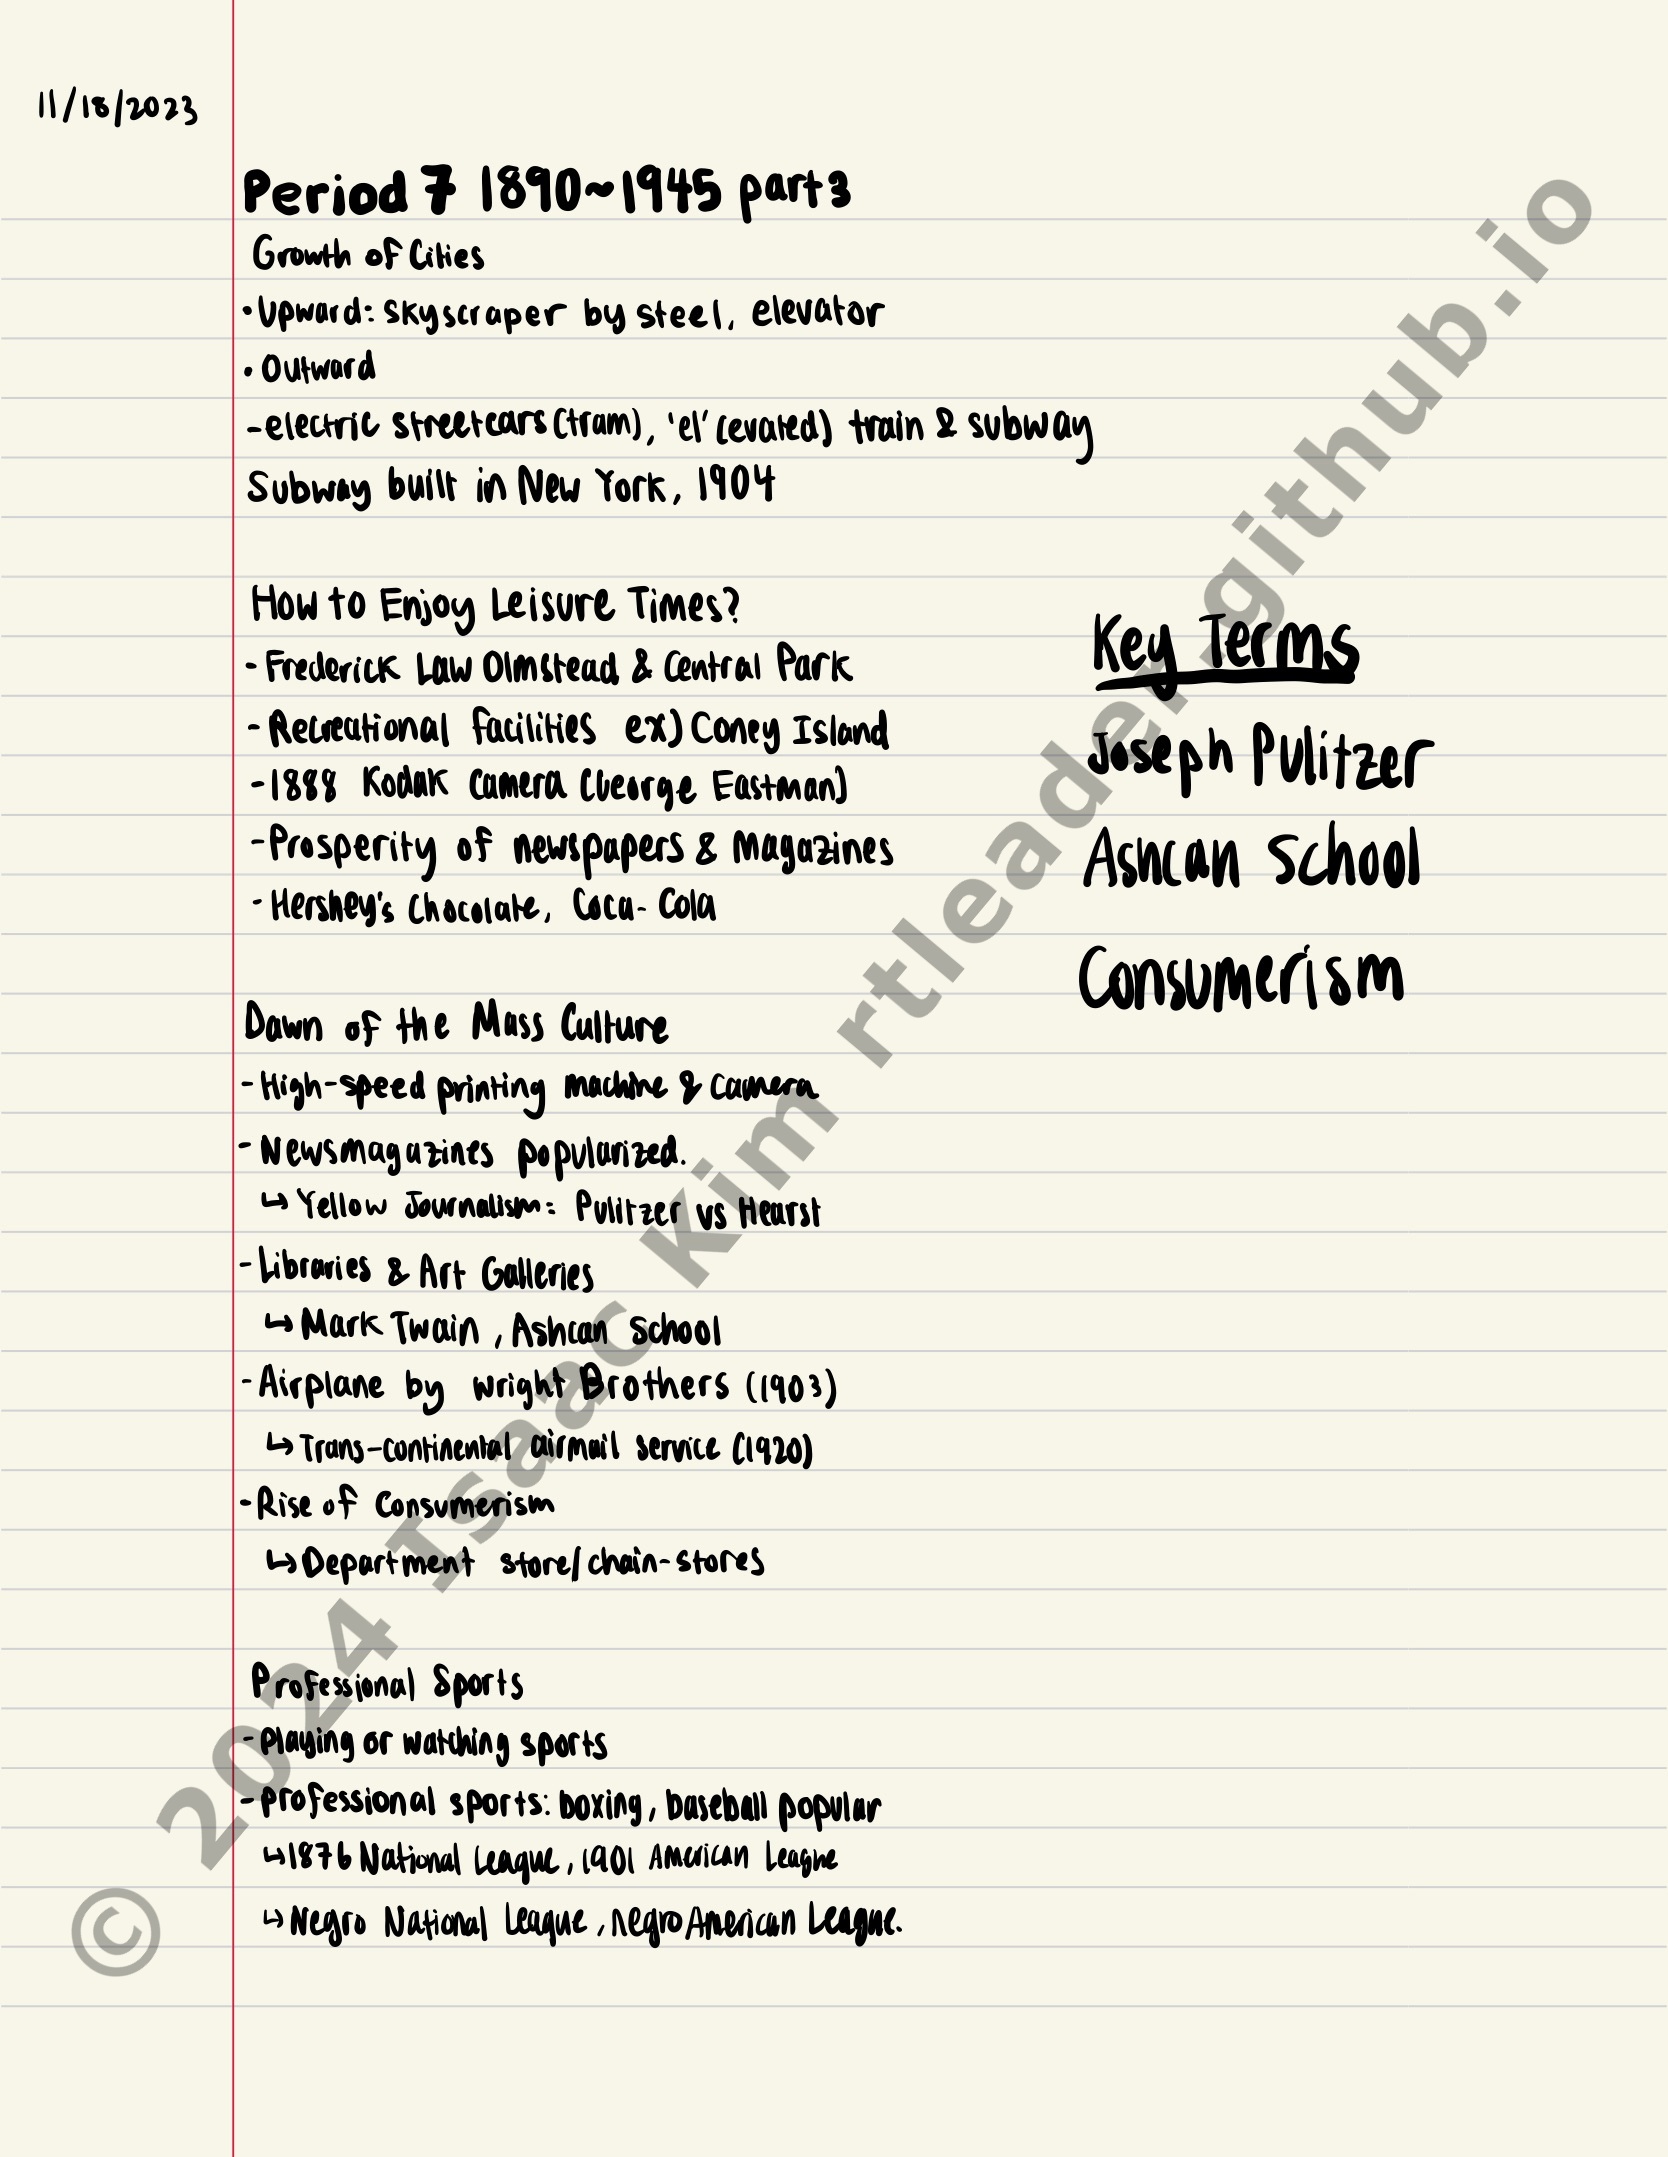 11/18/2023
Period 7 1890~1945 part3
Growth of Cities
• Upward: skyscraper by steel, elevator
• Outward
- electric streetcars (tram), 'el' (evated) train & subway
Subway built in New York, 1904
How to Enjoy Leisure Times?
- Frederick Law Olmstead & Central Park
- Recreational facilities ex) Coney Island
- 1888 Kodak Camera (George Eastman)
- Prosperity of newspapers & Magazines
- Hershey's Chocolate, Coca-Cola
Dawn of the Mass Culture
- High-speed printing machine & camera
- Newsmagazines popularized.
↳ Yellow Journalism: Pulitzer vs Hearst
- Libraries & Art Galleries
↳ Mark Twain, Ashcan School
- Airplane by Wright Brothers (1903)
↳ Trans-continental airmail service (1920)
- Rise of Consumerism
↳ Department store/chain-stores
Professional Sports
- Playing or watching sports
- professional sports: boxing, baseball popular
↳ 1876 National League, 1901 American League
↳ Negro National League, negro American League.
Key Terms
Joseph Pulitzer
Ashcan School
Consumerism
© 2024 Isaac Kim rtleader.github.io